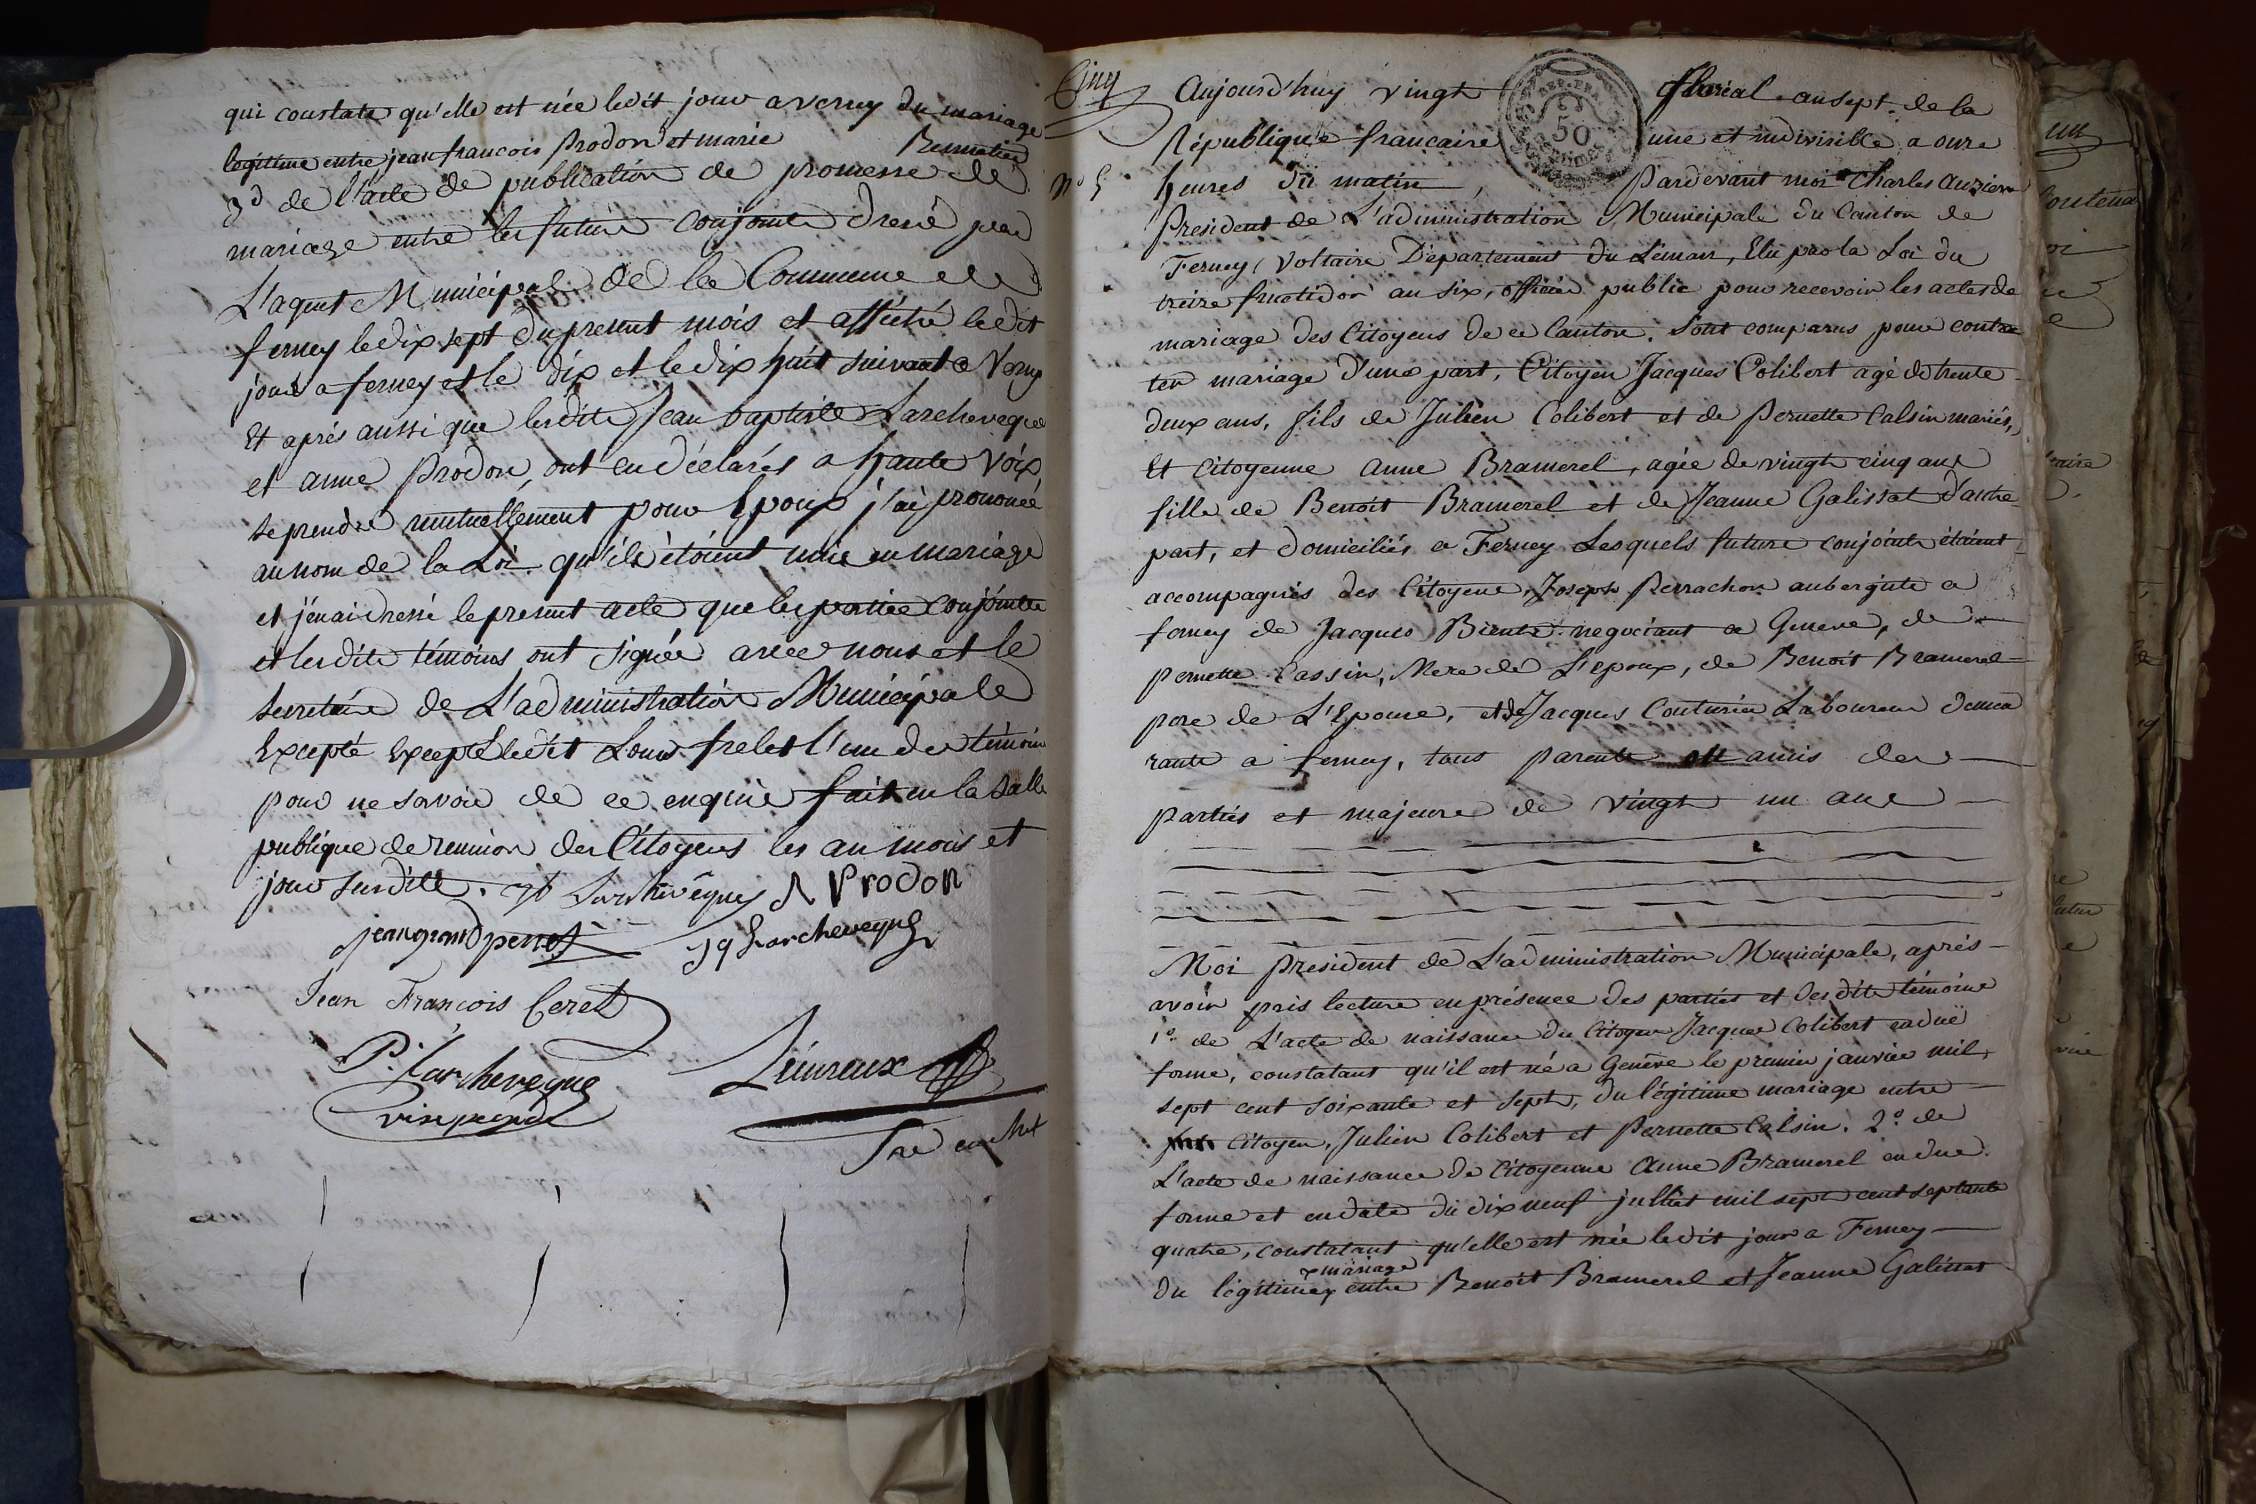 qui constate qu'elle est née ledit jour a verny du mariage
legitime entre jean francois Prodon et marie
3d de l'acte de publication de promesse de
mariage entre les futurs conjoints dressé par
L'agent Municipal de la Commune de
ferney le dix sept du present mois et affiché ledit
jour a ferney et le dix et le dix huit suivant a Verny
Et aprés aussi que lesdits Jean baptiste Larcheveque
et anne Prodon ont eu déclarés a haute voix
se prendre mutuellement pour Epoux j'ai prononcé
au nom de la Loi qu'ils étoient unis en mariage
et j'en ai dressé le present acte que les parties conjointes
et lesdits témoins ont signés avec nous et le
secretaire de L'administration Municipale
Excepté Excepté ledit Louis frelet l'un des témoins
pour ne savoir de ce enquis fait en la salle
publique de reunion des Citoyens les an mois et
jour susdits. Larchevêque A Prodon
jean grand perret J q Larcheveque
Jean François Ceret
P. Larcheveque
vise presid
Lumeaux
Sre en chef
Cinq
N° 5
Aujourd'huy vingt floréal an sept de la
République francaise une et indivisible a onze
heures du matin, Pardevant moi Charles Auzière
President de L'administration Municipale du Canton de
Ferney Voltaire Département du Léman, Elu par la Loi du
treize fructidor an six, officier public pour recevoir les actes de
mariage des Citoyens de ce Canton. Sont comparus pour contrac
ter mariage d'une part, Citoyen Jacques Colibert agé de trente
deux ans, fils de Julien Colibert et de Pernette Calsin mariés,
Et Citoyenne Anne Bramerel, agée de vingt cinq ans
fille de Benoit Bramerel et de Jeanne Galissat d'autre
part, et domiciliés a Ferney Lesquels futurs conjoints étaient
accompagnés des Citoyens, Joseph Perrachon aubergiste a
ferney de Jacques negociant a Geneve, de
pernette Cassin, Mere de L'epoux, de Benoit Bramerel
pere de L'Epouse, et de Jacques Couturier Laboureur demeu
rants a ferney, tous parents ou amis des
parties et majeurs de vingt un ans
Moi President de L'administration Municipale, aprés
avoir pris lecture en présence des parties et desdits témoins
1° de L'acte de naissance du Citoyen Jacques Colibert en düe
forme, constatant qu'il est né a Genève le premier janvier mil
sept cent soixante et sept, du légitime mariage entre
Citoyen, Julien Colibert et Pernette Calsin. 2° de
L'acte de naissance de Citoyenne Anne Bramerel en due
forme et en date du dix neuf julliet mil sept cent septante
quatre, constatant qu'elle est née ledit jour a Ferney
x mariage
du légitime x entre Benoit Bramerel et Jeanne Galissat